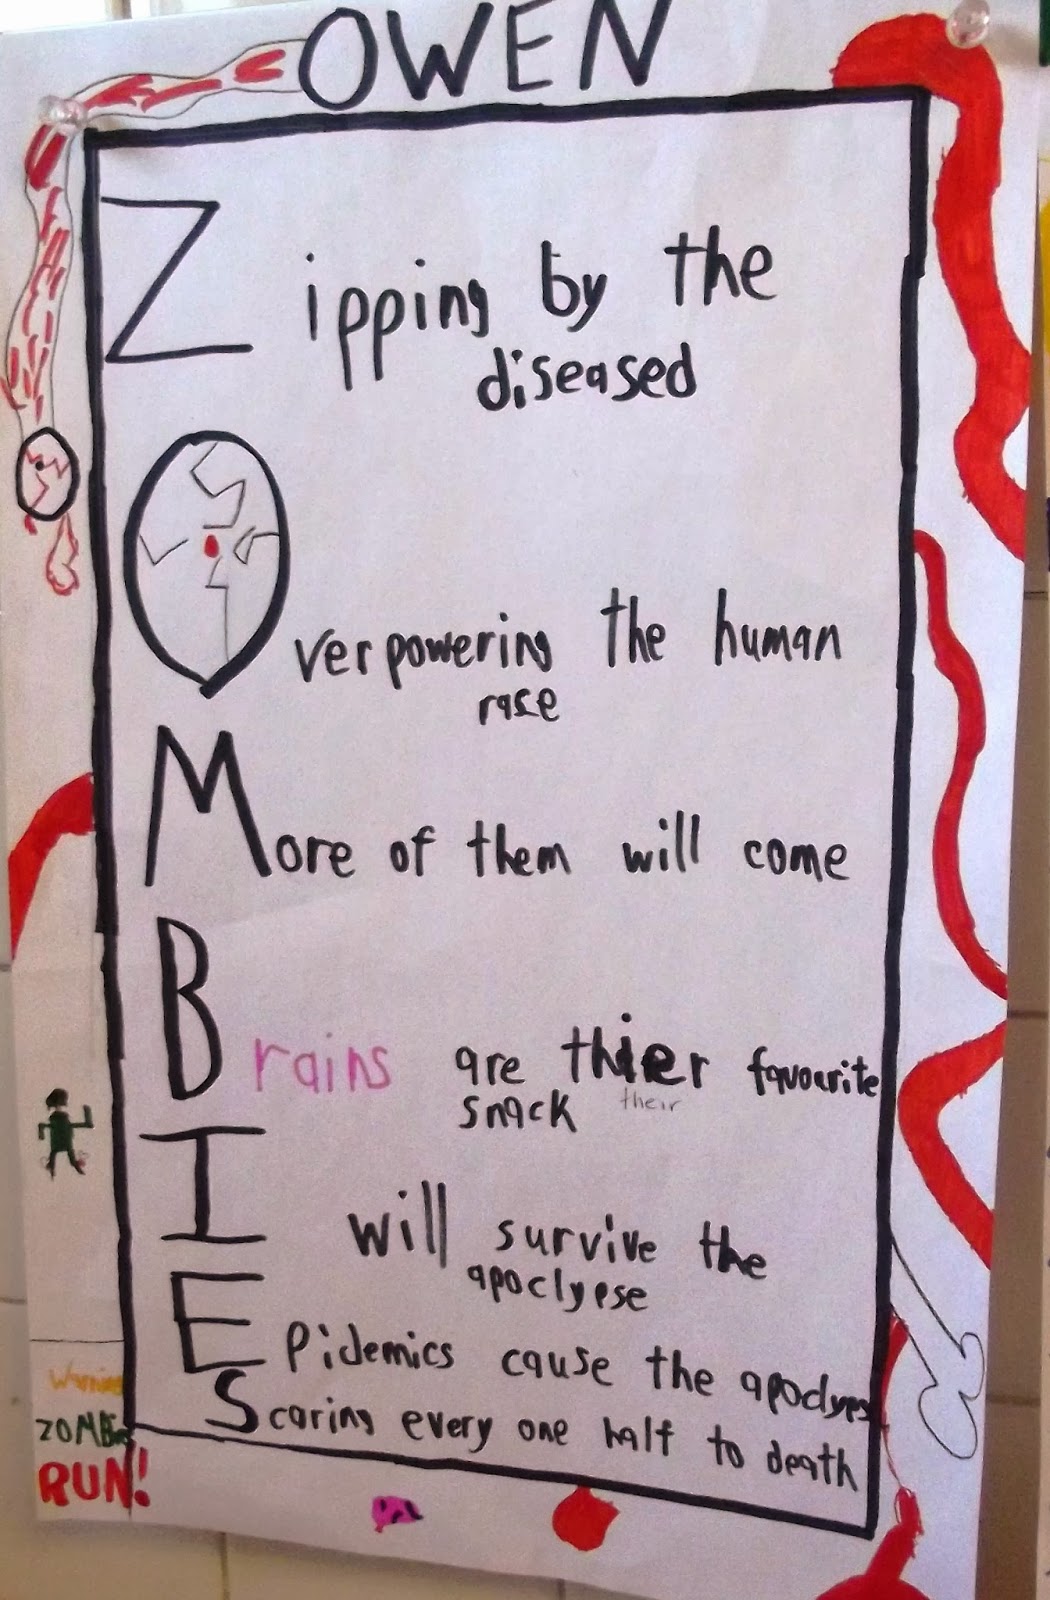 OWEN
Zipping by the
diseased
Overpowering the human
rase
More of them will come
Brains are thier favourite
snack their
I will survive the
apoclypse
Epidemics cause the apoclyps
Scaring every one half to death
Warning
ZOMBie
RUN!